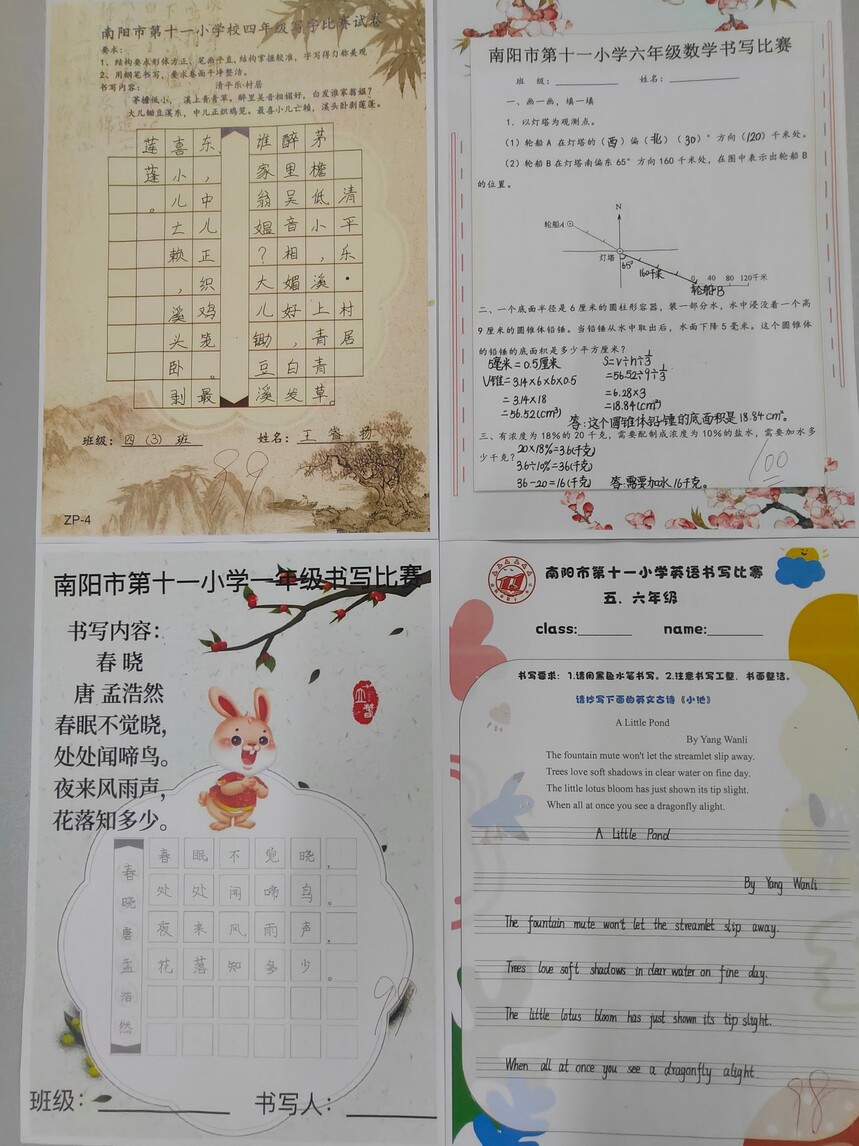 南阳市第十一小学校四年级写字比赛试卷
要求：
1、结构要求形体方正、笔画平直,结构掌握较准，字写得匀称美观
2、用钢笔书写，要求卷面干净整洁。
书写内容： 清平乐·村居
茅檐低小， 溪上青青草。醉里吴音相媚好，白发谁家翁媪？
大儿锄豆溪东，中儿正织鸡笼。最喜小儿亡赖，溪头卧剥莲蓬。
清平乐·村居
茅檐低小，溪上青青草。
醉里吴音相媚好，白发
谁家翁媪？大儿锄豆溪
东，中儿正织鸡笼。最
喜小儿亡赖，溪头卧剥
莲蓬。
班级：四（3）班 姓名：王 睿 扬
89
ZP-4
南阳市第十一小学六年级数学书写比赛
班 级： 姓名：
一、画一画，填一填
1. 以灯塔为观测点。
(1) 轮船 A 在灯塔的（西）偏（北）（30）°方向（120）千米处。
(2) 轮船 B 在灯塔南偏东 65° 方向 160 千米处，在图中表示出轮船 B
的位置。
N
轮船A
灯塔
65°
160千米
0 40 80 120千米
轮船B
二、一个底面半径是 6 厘米的圆柱形容器，装一部分水，水中浸没着一个高
9 厘米的圆锥体铅锤。当铅锤从水中取出后，水面下降 5 毫米。这个圆锥体
的铅锤的底面积是多少平方厘米？
5毫米=0.5厘米 S=V÷h÷1/3
V锥=3.14×6×6×0.5 =56.52÷9÷1/3
=3.14×18 =6.28×3
=56.52(cm³) =18.84(cm²)
答:这个圆锥体铅锤的底面积是18.84cm²。
三、有浓度为 18%的 20 千克，需要配制成浓度为 10%的盐水，需要加水多
少千克？20×18%=3.6(千克)
3.6÷10%=36(千克)
36-20=16(千克) 答:需要加水16千克。
100
南阳市第十一小学一年级书写比赛
书写内容：
春 晓
唐 孟浩然
春眠不觉晓，
处处闻啼鸟。
夜来风雨声，
花落知多少。
春晓 唐 孟浩然
春眠不觉晓，
处处闻啼鸟。
夜来风雨声，
花落知多少。
班级： 书写人：
南阳市第十一小学英语书写比赛
五、六年级
class: name:
书写要求：1.请用黑色水笔书写。2.注意书写工整，书面整洁。
请抄写下面的英文古诗《小池》
A Little Pond
By Yang Wanli
The fountain mute won't let the streamlet slip away.
Trees love soft shadows in clear water on fine day.
The little lotus bloom has just shown its tip slight.
When all at once you see a dragonfly alight.
A Little Pond
By Yang Wanli
The fountain mute won't let the streamlet slip away.
Trees love soft shadows in clear water on fine day.
The little lotus bloom has just shown its tip slight.
When all at once you see a dragonfly alight.
98